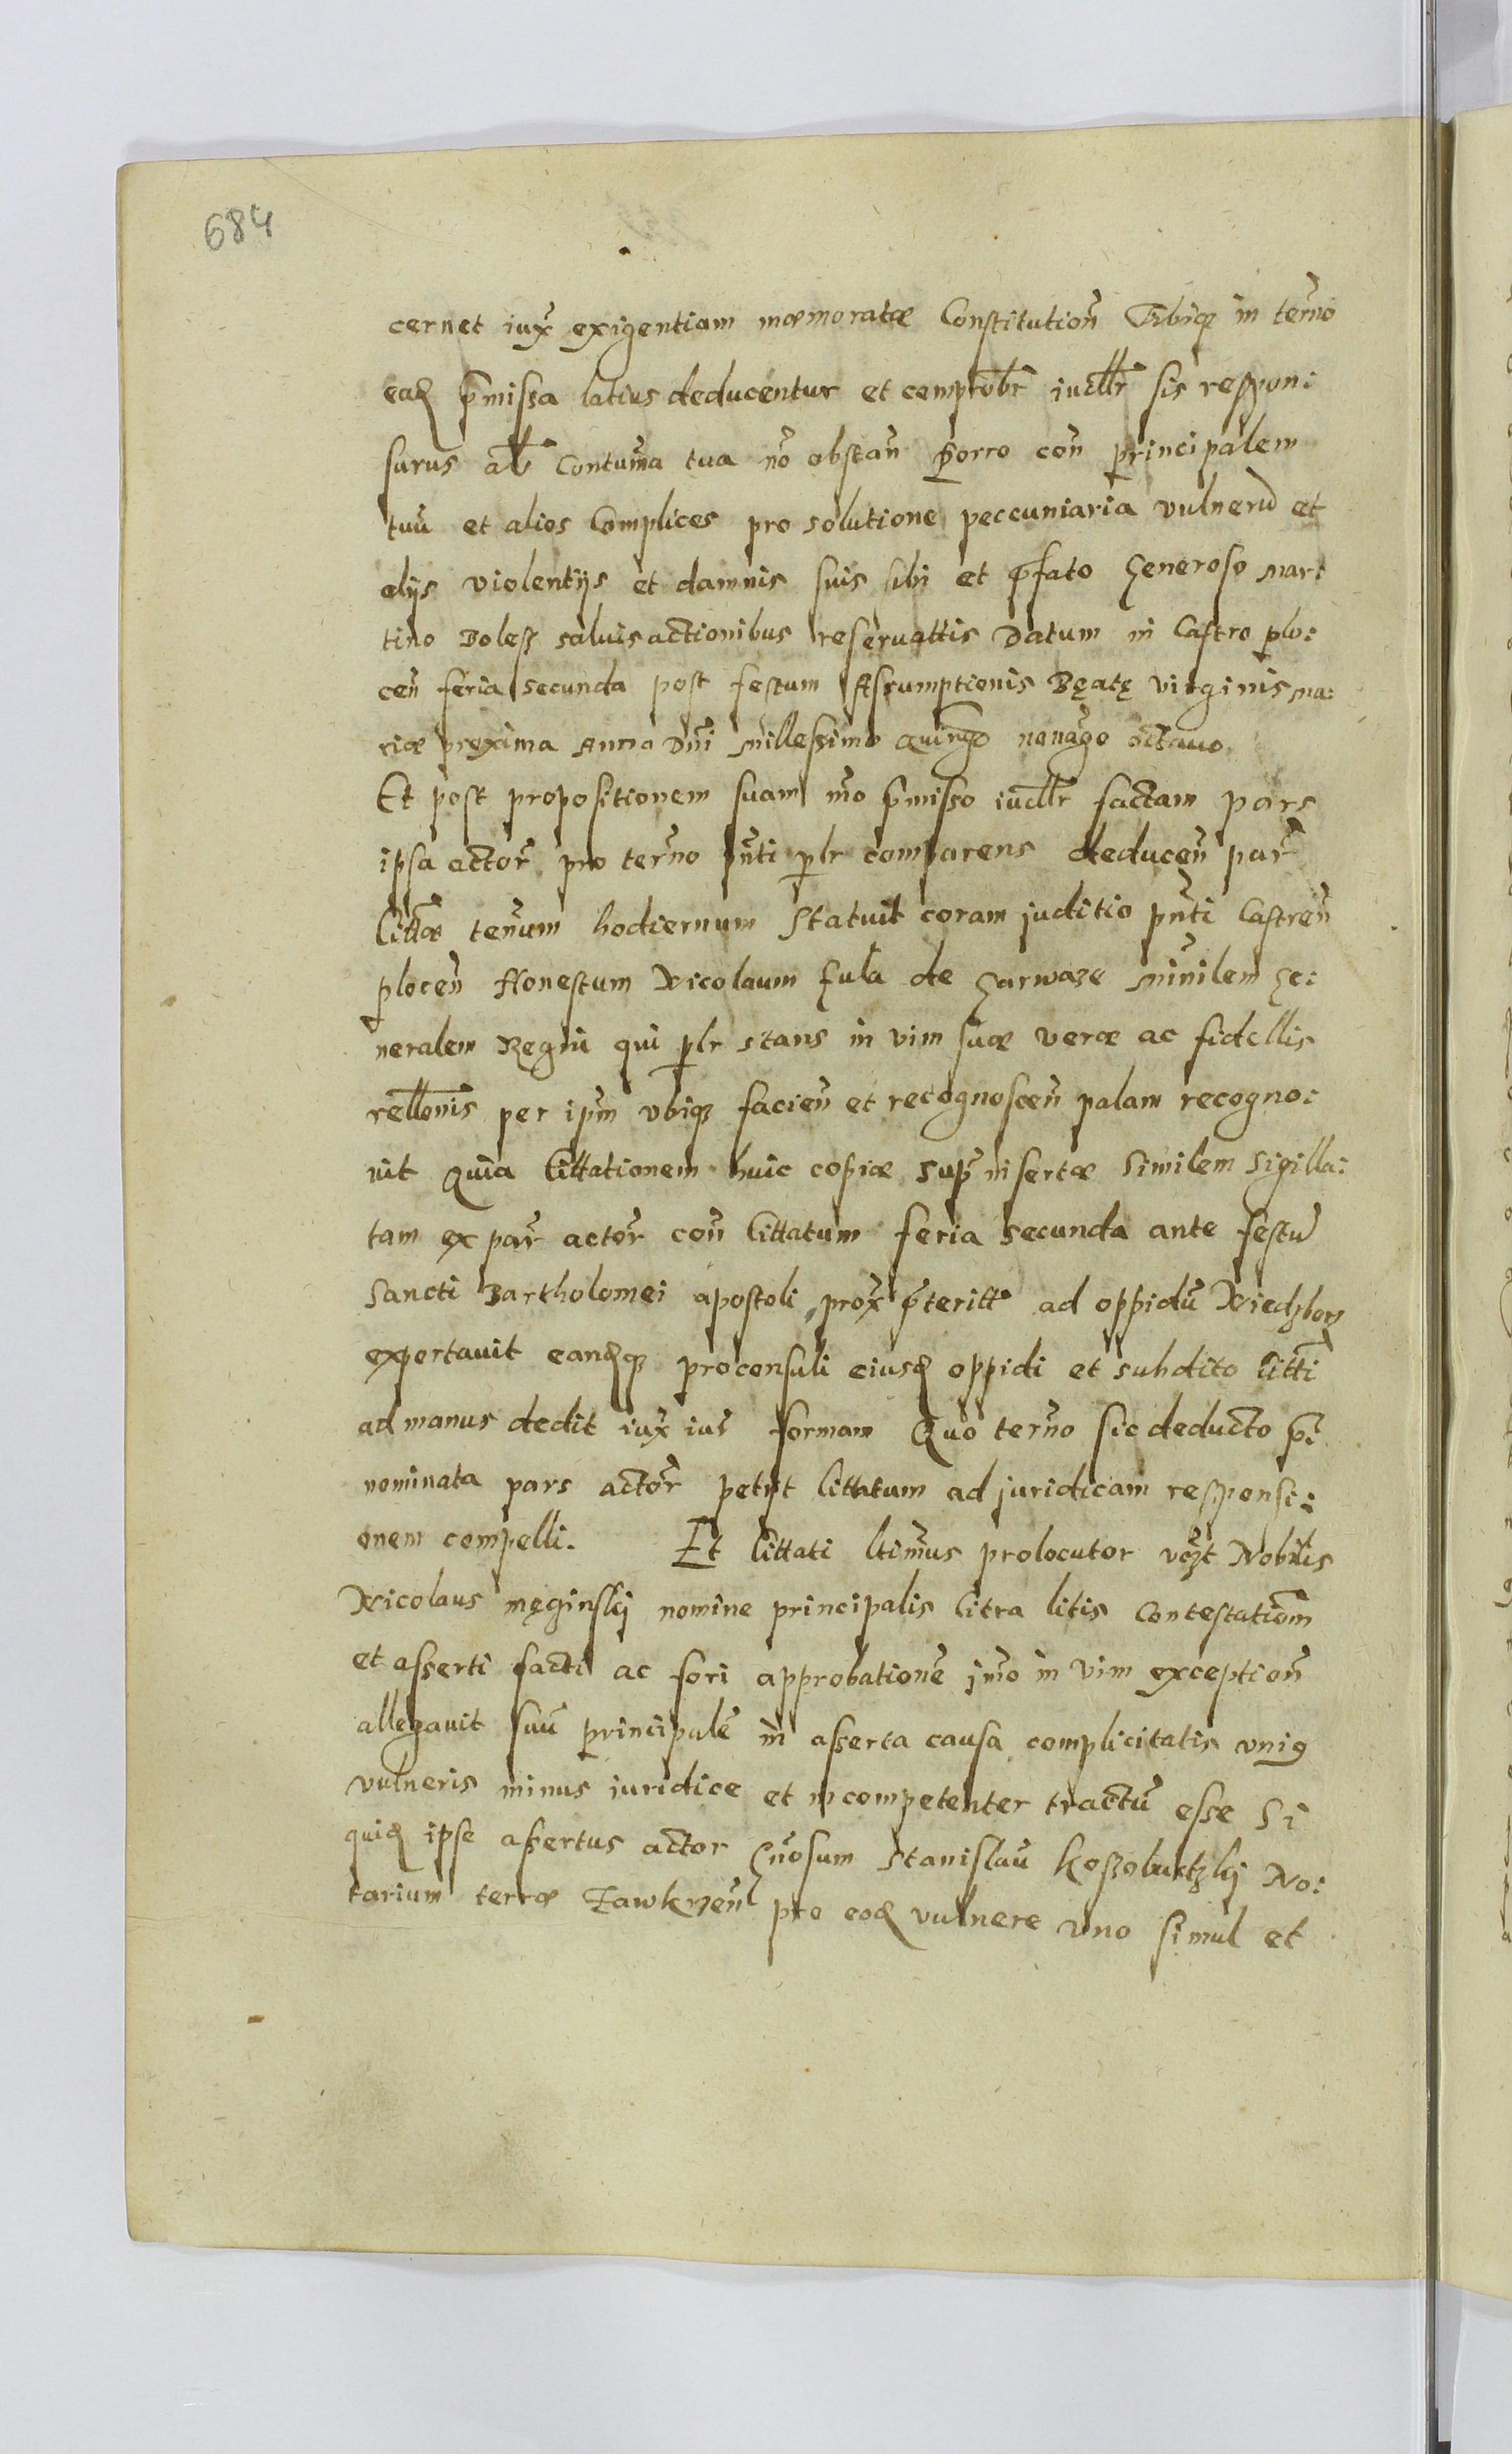 684
cernet iux̃ exigentiam mæmoratæ Constitution̄ Tibiqȝ in ter̃no
ead p̃missa latius deducentur et comprobr̃ iudllr̃ sis respon:
surus al̃ Contum̃a tua nõ obstan̄ Porro con̄ principalem
tuũ et alios Complices pro solutione peccuniaria vulnerũ et
alijs violentijs et damnis suis sibi et p̃fato Generoso Mar:
tino Bolesz saluis actionibus reseruattis Datum in Castro plo:
cen̄ feria secunda post festum Assumptionis Bęatę virginis Ma:
riæ proxima Anno Dñi Millessimo Quing̃o nonag̃o octauo
Et post propositionem suam mõ p̃misso iudllr̃ factam pars
ipsa actor̃ pro ter̃no pñti plr comparens deducen̄ par̃
Citt̃æ ter̃num hodiernum Statuit coram juditio pñti Castren̄
plocen̄ Honestum Nicolaum Gula de Garwaze Minilem Ge:
neralem Regni qui plr stans in vim suæ veræ ac fidellis
rellonis per ipm̃ vbiqȝ facien̄ et recognoscen̄ palam recogno:
uit Quia Cittationem huic copiæ sup̃ insertæ Similem Sigilla:
tam ex par̃ actor̃ con̄ Cittatum feria secunda ante festũ
Sancti Bartholomei apostoli prox̃ p̃teritt ad oppidũ Niedzborz
exportauit eandqȝ proconsuli eiusd oppidi et subdito Citti
ad manus dedit iux̃ iur̃ formam Quo ter̃no sic deducto p̃
nominata pars actor̃ petijt Cittatum ad juridicam responsi:
onem compelli. Et Cittati ltimus prolocutor vczt Nobilis
Nicolaus męginskj nomine principalis Citra litis Contestatiõm
et asserti facti ac fori approbationẽ jm̃o in vim exception̄
allegauit suũ principalẽ in asserta causa complicitatis vniꝯ
vulneris minus iuridice et incompetenter tractũ esse Si
quid ipse assertus actor Gñosum Stanislaũ Koszobudzkj No:
tarium terræ Zawkrzen̄ pro eod vulnere vno simul et